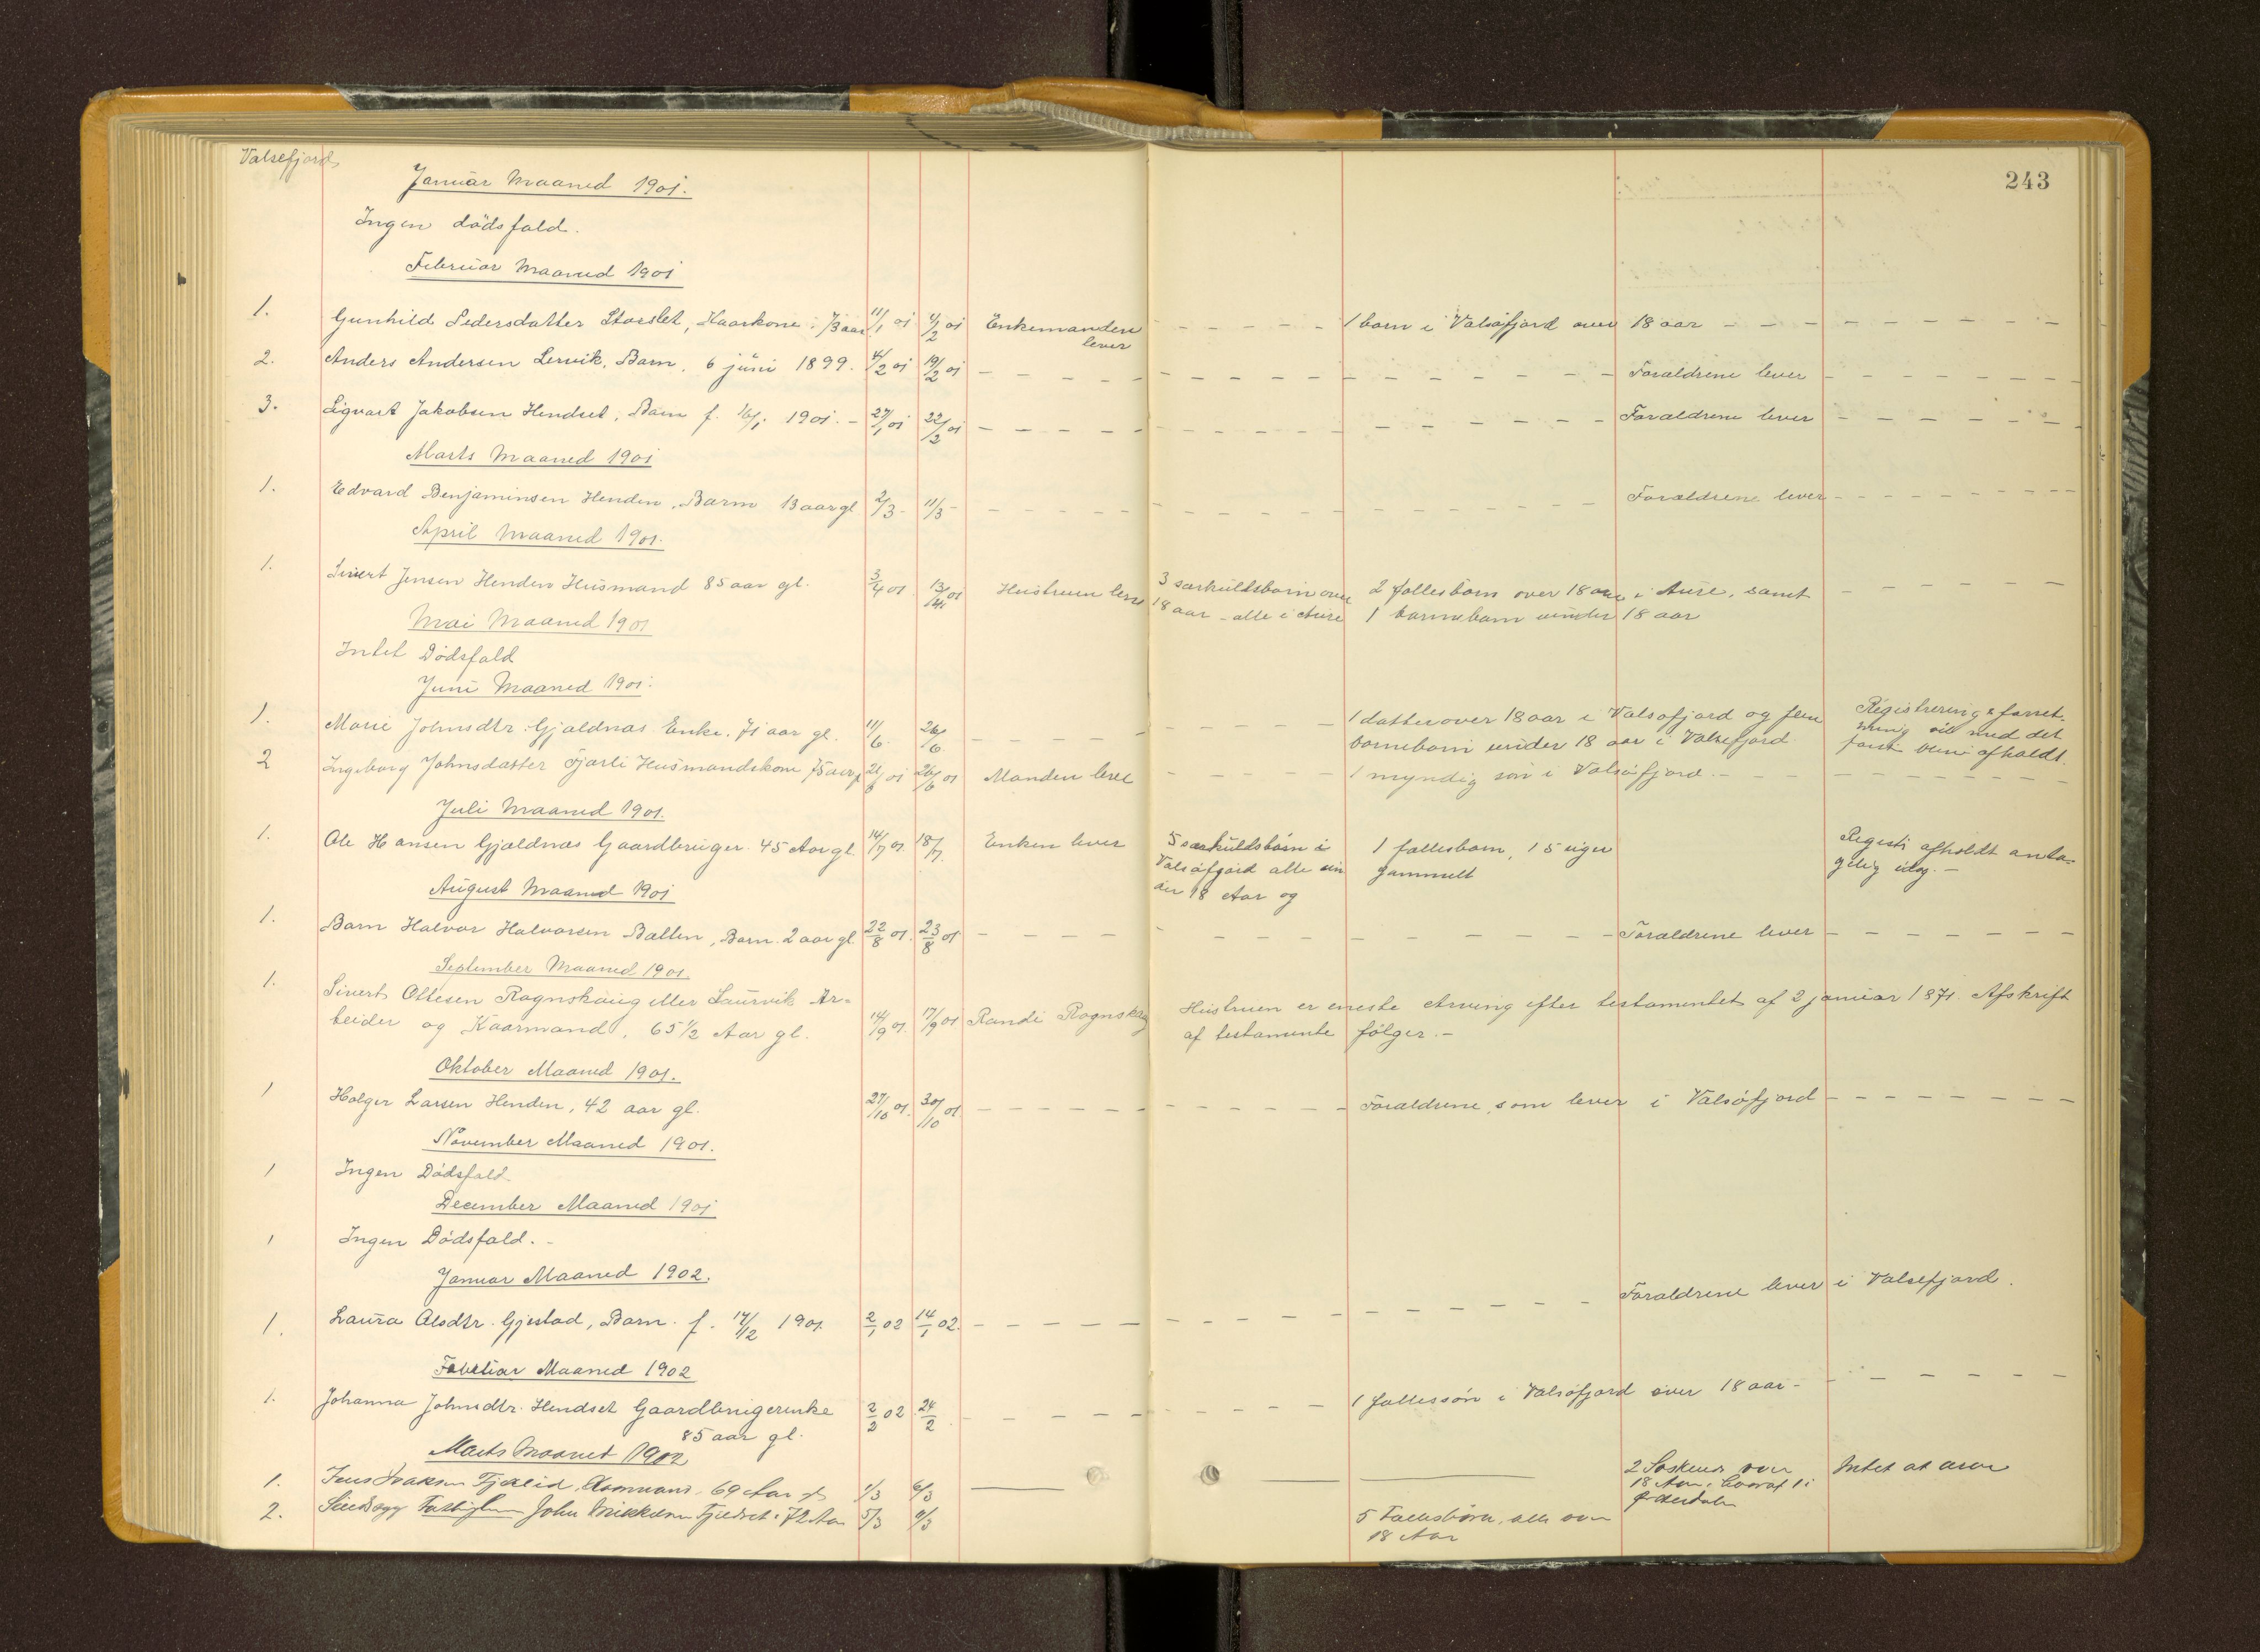 Valsefjord
243
Januar Maaned 1901.
Ingen dödsfald.
Februar Maaned 1901
1. Gunhild Pedersdatter Storslet, Kaarkone. 73 aar 11/1 01 4/2 01 Enkemanden lever - - - - - 1 barn i Valsöfjord over 18 aar - - - - - - -
2. Anders Andersen Lervik, Barn, 6 juni 1899. 4/2 01 19/2 01 - - - - - - Foraldrene lever - - - - - -
3. Sigvart Jakobsen Hendset, Barn f. 16/1 1901. - 27/1 01 22/2 01 - - - - - - Foraldrene lever - - - - - -
Marts Maaned 1901
1. Edvard Benjaminsen Henden, Barn 13 aar gl 2/3 - 11/3 - - - - - - Foraldrene lever - - - - - -
April Maaned 1901.
1. Sivert Jensen Henden Husmand 85 aar gl. 3/4 01 13/4 01 Hustruen lever 3 særkuldsbørn over 2 fallesbørn over 18 aar i Aure, samt - - - - -
18 aar - alle i Aure 1 barnebarn under 18 aar
Mai Maaned 1901
Intet Dödsfald
Juni Maaned 1901.
1. Marie Johnsdtr. Gjeldnas Enke. 71 aar gl. 11/6. 26/6 - - - - - 1 datter over 18 aar i Valsofjord og flere Registrerings forret-
barnebarn under 18 aar i Valsefjord ning vil med det
først blive afholdt.
2 Ingeborg Johnsdatter Fjarli Husmandskone 75 aar 21/6 01 26/6 01 Manden lever - - - - - 1 myndig søn i Valsöfjord. - - - - - -
Juli Maaned 1901.
1. Ole Hansen Gjældnas Gaardbruger. 45 Aar gl. 14/7 01. 18/7. Enken lever 5 særkuldsbørn i 1 fallesbarn, 15 uger Regist. afholdt anta-
Valsöfjord alle un gammelt gelig idag. -
der 18 Aar og
August Maaned 1901
1. Barn Halvor Halvorsen Ballen, Barn. 2 aar gl. 22/8 01. 23/8 01 - - - - - - Foraldrene lever - - - - - -
September Maaned 1901.
1. Sivert Ottesen Rognskaug eller Laurvik Ar-
beider og Kaarmand, 65 1/2 Aar gl. 14/9 01. 17/9 01 Randi Rognskog Hustruen er eneste Arving efter testamentet af 2 januar 1871. Afskrift
af testamente følger. -
Oktober Maaned 1901.
1 Holger Larsen Henden, 42 aar gl. 27/10 01. 30/10 01 - - - - - - Foraldrene, som lever i Valsöfjord - - - - - -
November Maaned 1901.
1 Ingen Dödsfald
December Maaned 1901
1 Ingen Dödsfald. -
Januar Maaned 1902.
1. Laura Olsdtr. Gjestad, Barn. f. 17/12 1901. 2/1 02 14/1 02. - - - - - - Foraldrene lever i Valsefjord.
Februar Maaned 1902
1. Johanna Johnsdtr. Hendset Gaardbrugerenke 2/2 02 24/2 - - - - - 1 fallessøn i Valsöfjord over 18 aar - - - - - -
85 aar gl.
Marts Maaned 1902
1. Jens Fjælid 69 Aar 1/3 6/3 2 Søskende over Intet at arve
18 Aar, hvoraf 1 i
2. John Mikkelsen Fjeldset. 72 Aar 5/3 9/3 5 Fællesbørn, alle over
18 Aar